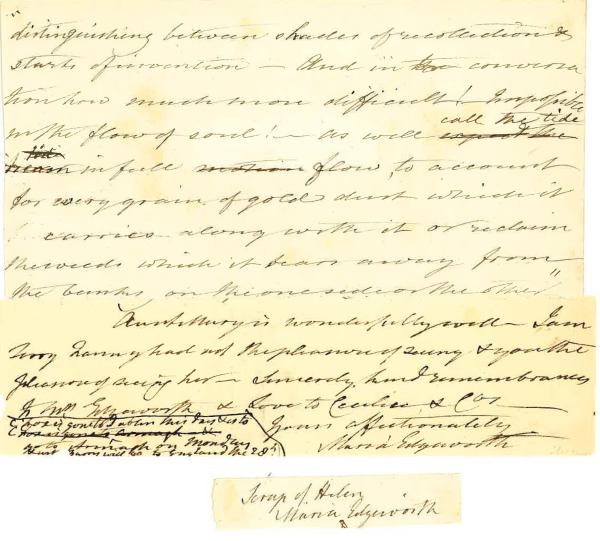 distinguishing between shades of recollection &
starts of invention – And in the conversa
tion how much more difficult! – Impossible
in the flow of soul! – as well expect the
call the tide
tide
in full motion flow, to account
for every grain of gold dust which it
carries along with it or reclaim
the weeds which it tears away from
the banks on the one side or the other"
Aunt Mary is wonderfully well – I am
sorry Fanny had not the pleasure of seeing & you the
pleasure of seeing her – Sincerely kind remembrances
to Mrs Edgeworth & Love to Cecilia & Co
Yours affectionately
Maria Edgeworth
gone to Dublin this day & is to
Armagh
go to Armagh on Monday
to England the 28th
Scrap of Helen
Maria Edgeworth